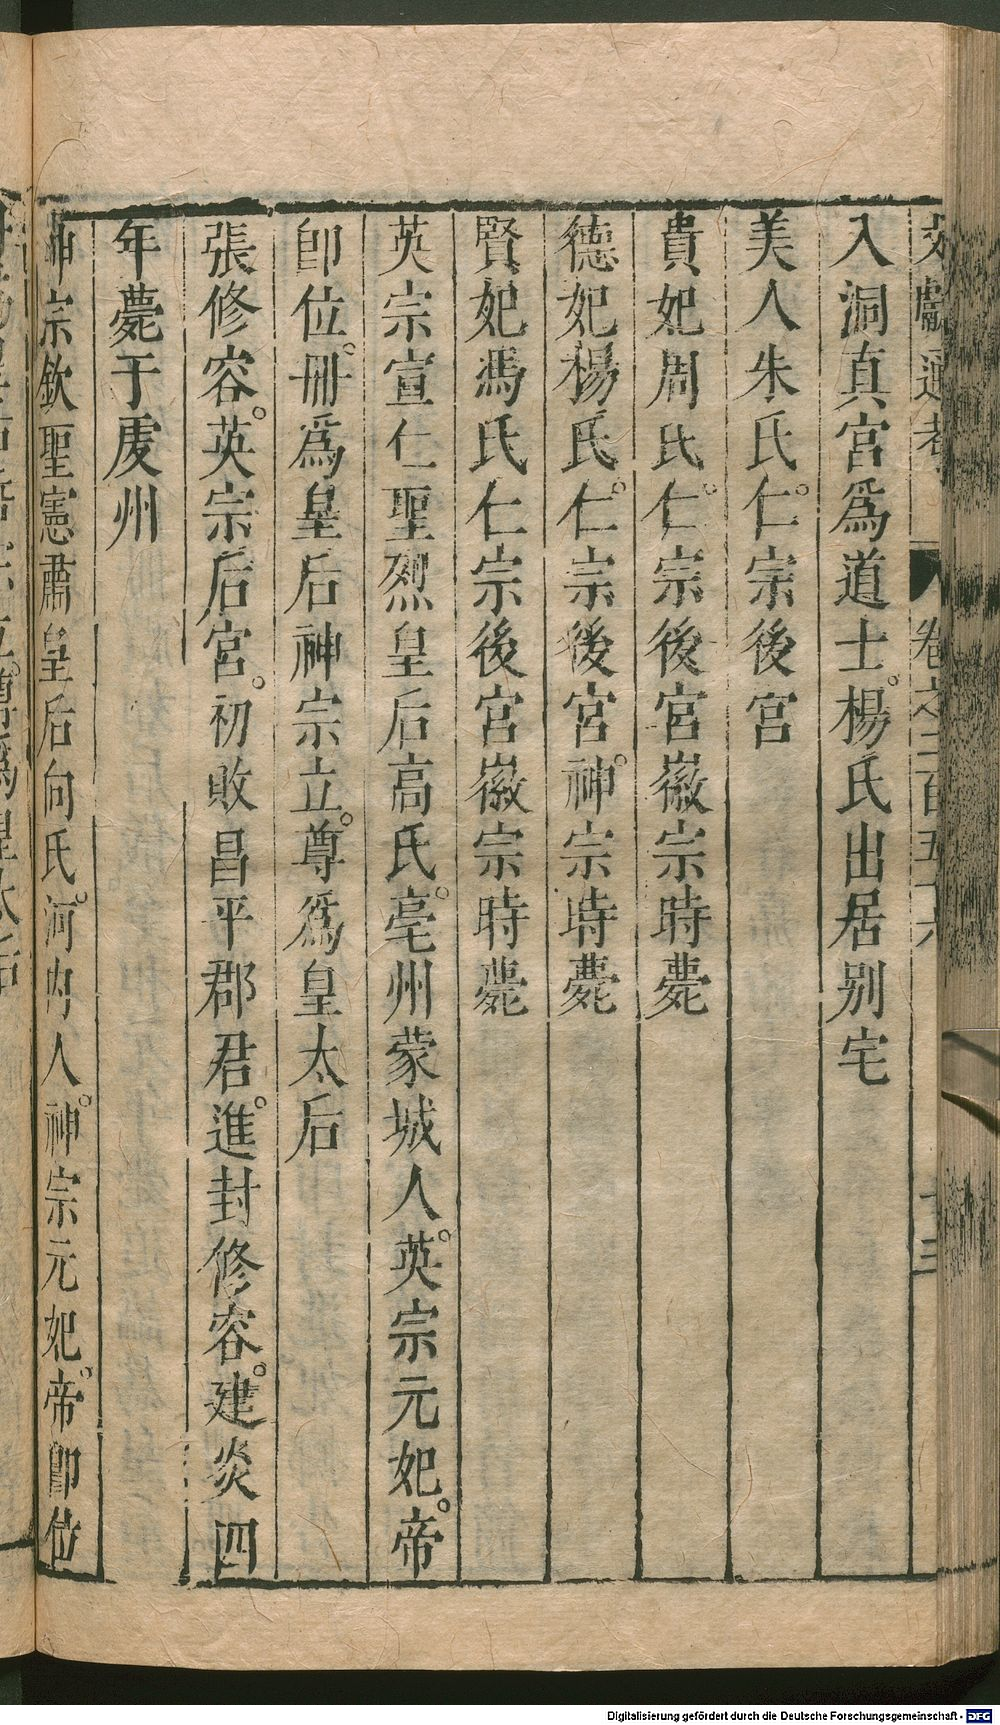 文獻通考 卷之二百五十六 十三
入洞真宮為道士。楊氏出居别宅
美人朱氏。仁宗後宮
貴妃周氏。仁宗後宮徽宗時薨
德妃楊氏。仁宗後宮。神宗時薨
賢妃馮氏仁宗後宮徽宗時薨
英宗宣仁聖烈皇后高氏。亳州蒙城人。英宗元妃。帝
卽位。冊爲皇后神宗立。尊爲皇太后
張修容。英宗后宮。初敗昌平郡君。進封修容。建炎四
年薨于虔州
神宗欽聖憲肅皇后向氏。河內人。神宗元妃。帝卽位
Digitalisierung gefördert durch die Deutsche Forschungsgemeinschaft - DFG